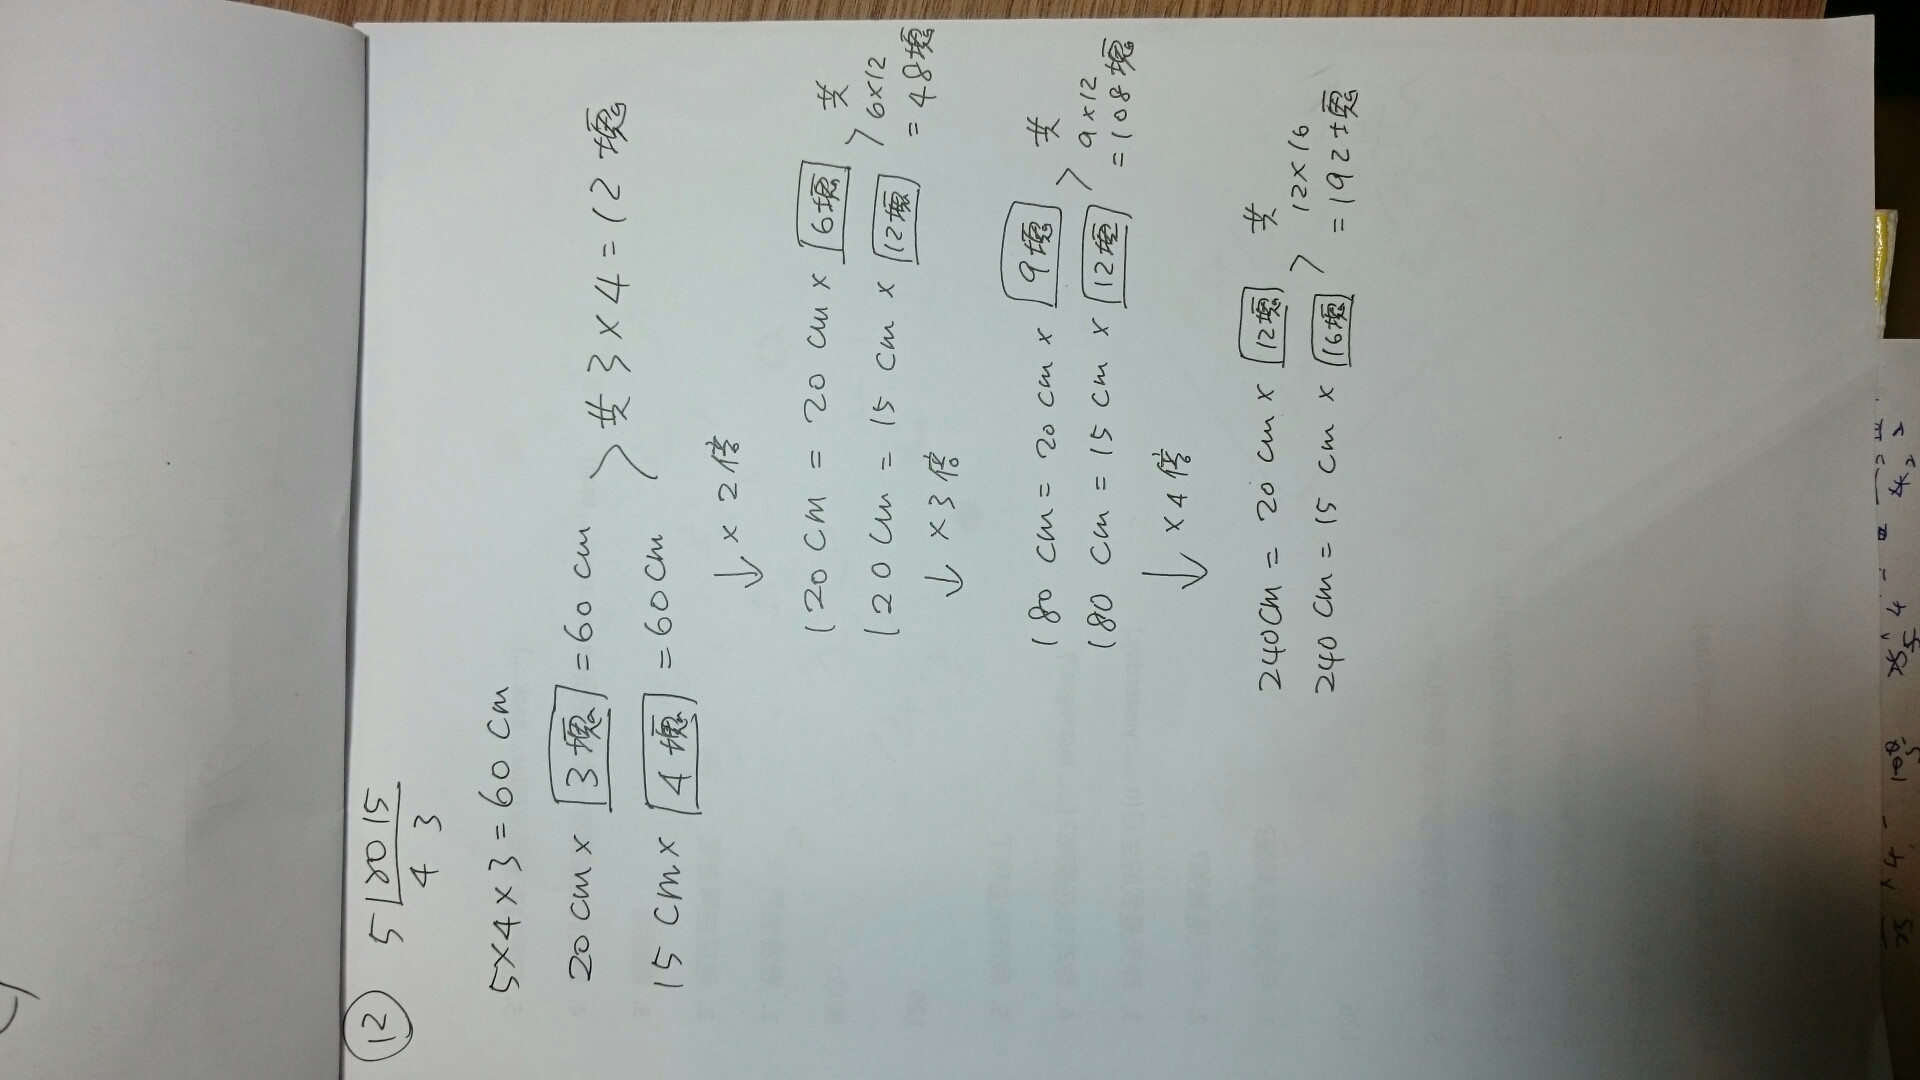 ⑫ 5|20 15
4 3
5×4×3=60 cm
20 cm × 3塊 =60 cm
15 cm × 4塊 =60 cm
> 共 3×4=12塊
↓ ×2倍
120 cm = 20 cm × 6塊
120 cm = 15 cm × 12塊
> 共
6×12
=48塊
↓ ×3倍
180 cm = 20 cm × 9塊
180 cm = 15 cm × 12塊
> 共
9×12
=108塊
↓ ×4倍
240 cm = 20 cm × 12塊
240 cm = 15 cm × 16塊
> 共
12×16
=192塊